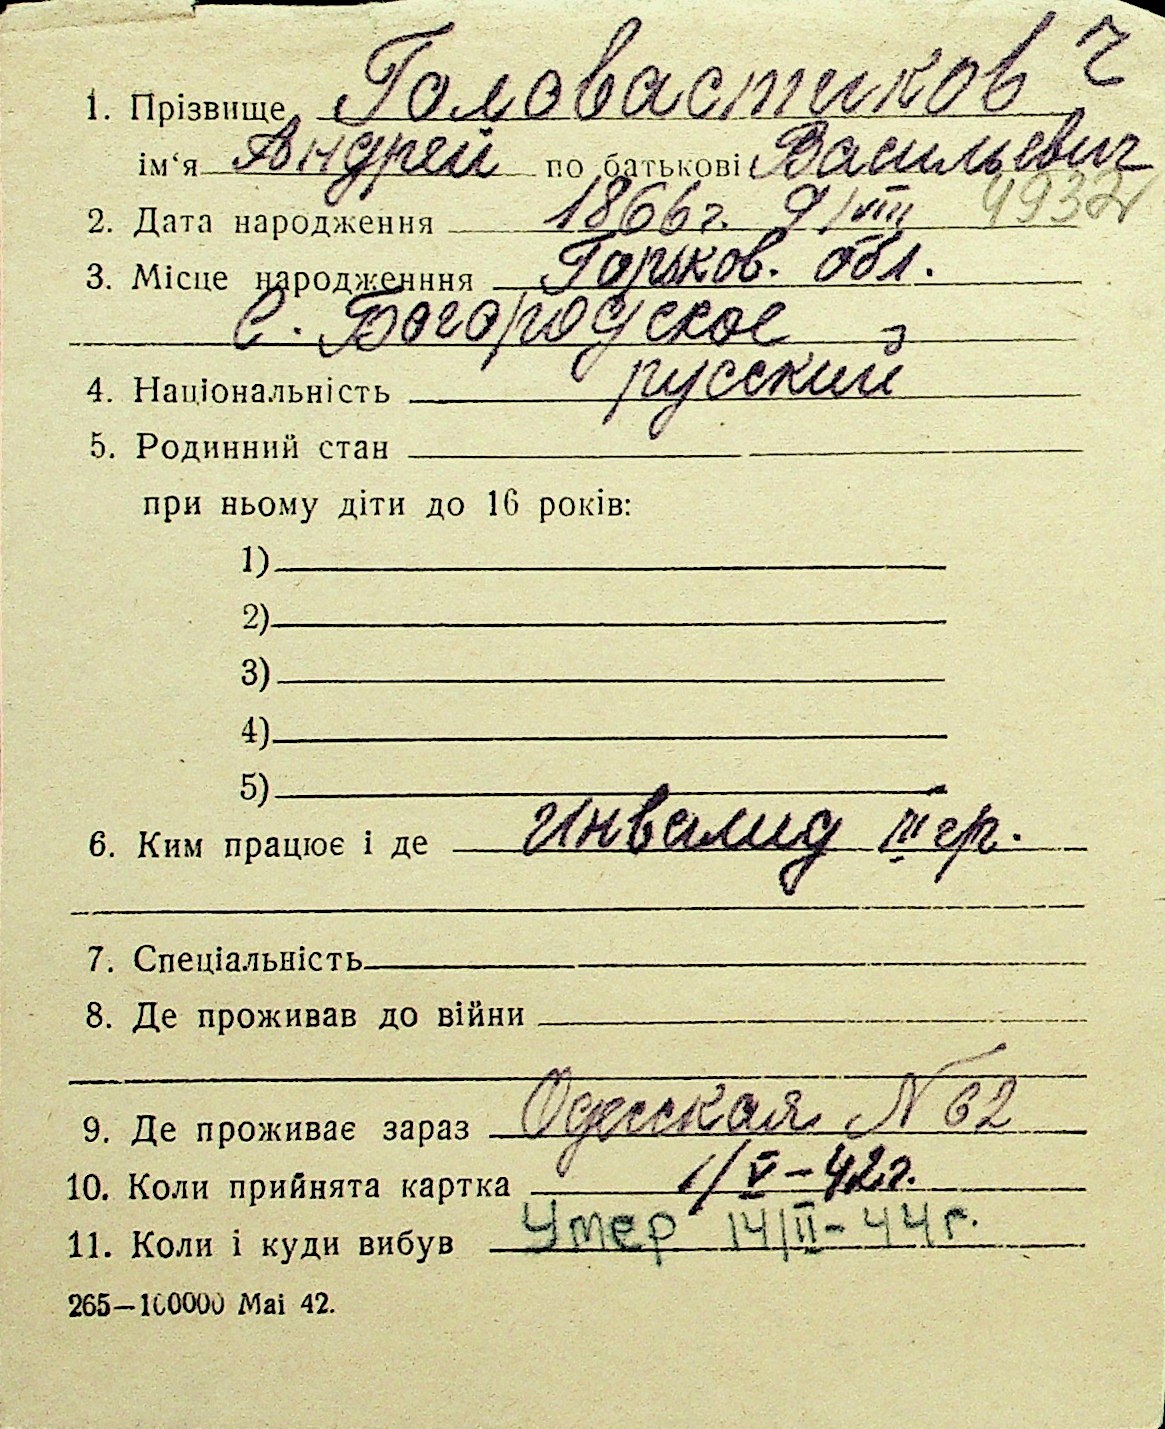 1. Прізвище Головастиков ч
ім‘я Андрей по батькові Васильевич
2. Дата народження 1866 г. 9/VIII 4932
3. Місце народженння Горьков. обл.
С. Богородское
4. Національність русский
5. Родинний стан
при ньому діти до 16 років:
1)
2)
3)
4)
5)
6. Ким працює і де Инвалид III гр.
7. Спеціальність
8. Де проживав до війни
9. Де проживає зараз Одесская № 62
10. Коли прийнята картка 1/V–42 г.
11. Коли і куди вибув Умер 14/II–44 г.
265—100000 Mai 42.